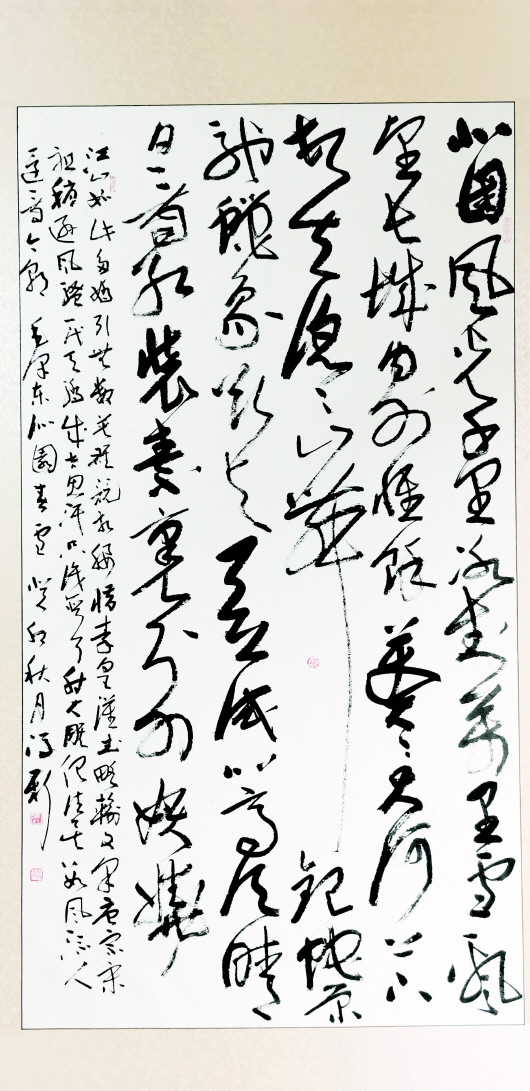 北国风光千里冰封万里雪飘
望长城内外惟余莽莽大河上下
顿失滔滔山舞银蛇原
驰蜡象欲与天公试比高须晴
日看红装素裹分外妖娆
江山如此多娇引无数英雄竞折腰惜秦皇汉武略输文采唐宗宋
祖稍逊风骚一代天骄成吉思汗只识弯弓射大雕俱往矣数风流人
物还看今朝 毛泽东沁园春雪 癸卯秋月